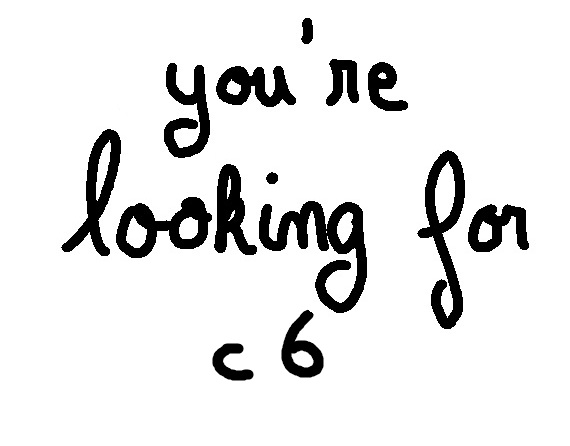 you're
looking for
c 6